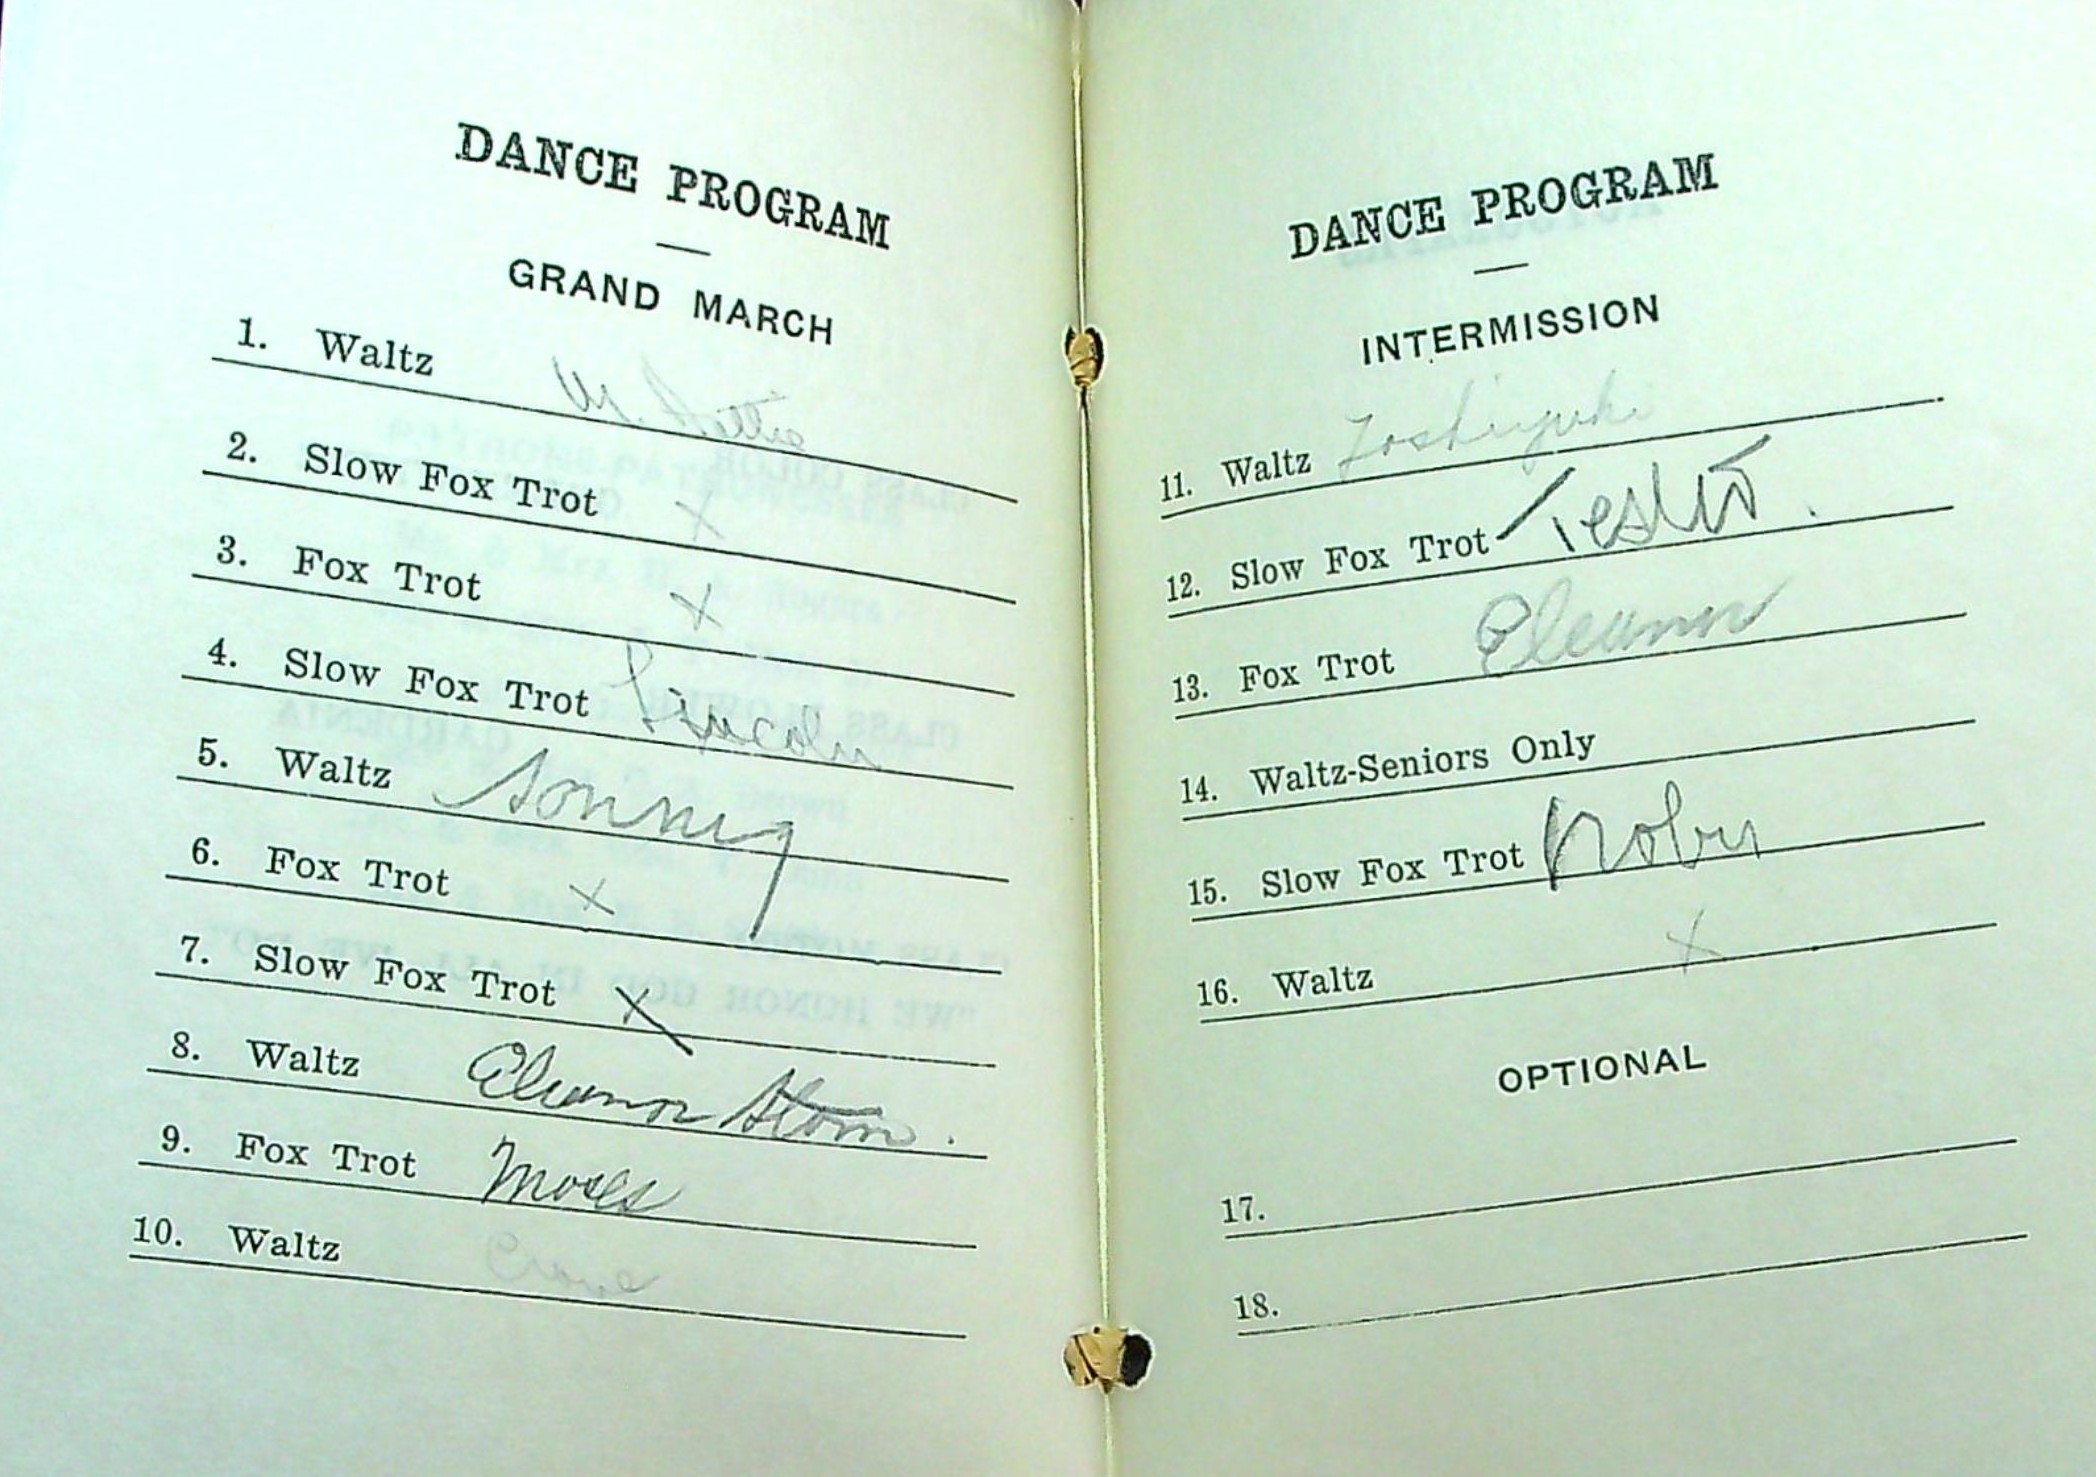 DANCE PROGRAM
GRAND MARCH
1. Waltz
2. Slow Fox Trot X
3. Fox Trot X
4. Slow Fox Trot Lincoln
5. Waltz Sonny
6. Fox Trot X
7. Slow Fox Trot X
8. Waltz Eleanor
9. Fox Trot Moses
10. Waltz
DANCE PROGRAM
INTERMISSION
11. Waltz Toshiyuki
12. Slow Fox Trot
13. Fox Trot Eleanor
14. Waltz-Seniors Only
15. Slow Fox Trot
16. Waltz X
OPTIONAL
17.
18.